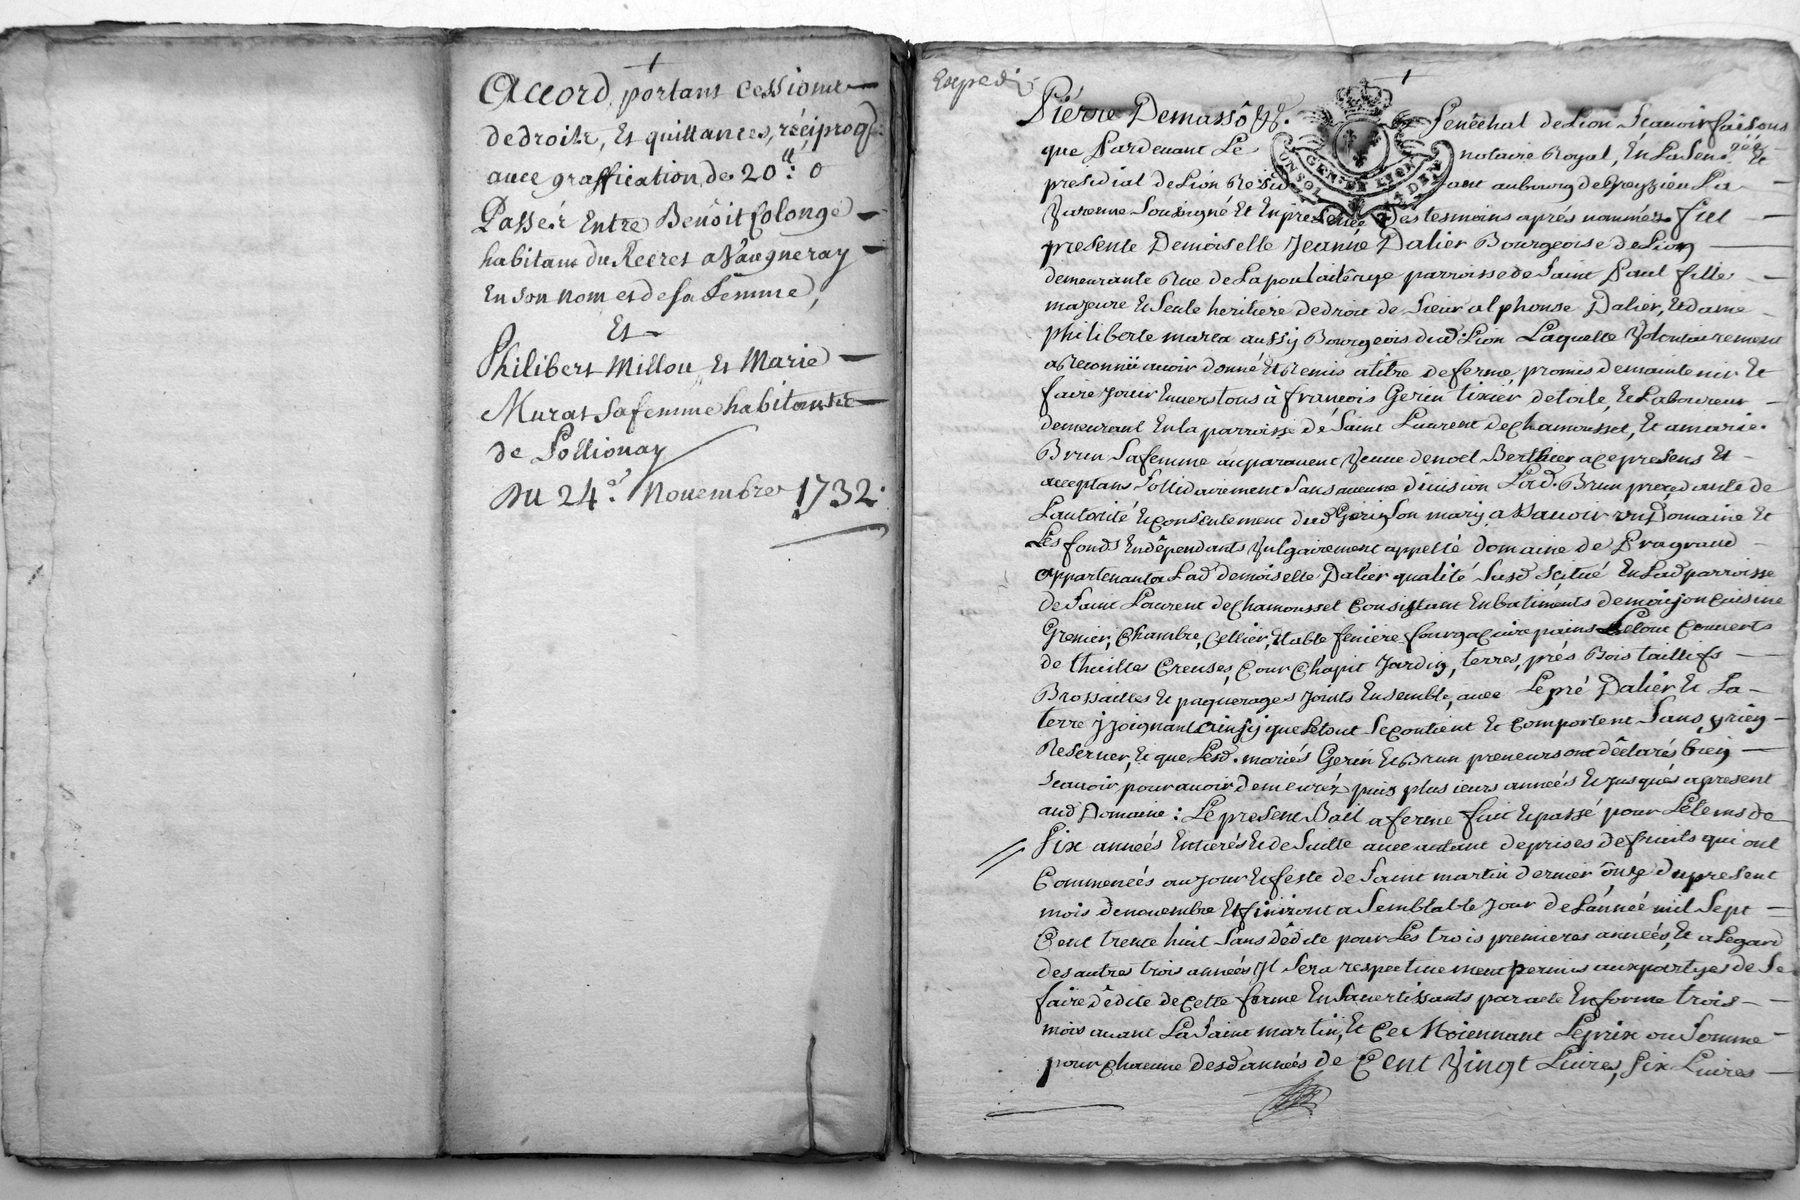 Accord, portant cessions
de droits, Et quittances, réciproqs.
avec graffication de 20ᵗᵗ: 0
Passéé Entre Benoit Colonge
habitant du Recret a Vaugneray
En son nom et de sa femme,
Et
Philibert Millou Et Marie
Murat sa femme habitants
de Pollionay
Du 24ᵉ. Novembre 1732.
Expedié
Piérre Demassô &c. Senêchal de Lion Scavoir faisons
que Pardevant Le notaire Royal, En La Sen.ᵉᵉ Et
presidial de Lion Resid ant au bourg de Greyzieu La
Varenne Soussigné Et En présence Des tesmoins aprés nommés fut
presente Demoiselle Jeanne Dalier Bourgeoise de Lion
demeurante Rue de La poulaillerye parroisse de Saint Paul fille
majeure Et Seule heritiere de droit de Sieur alphonse Dalier, Et dame
philiberte marca aussy Bourgeois dud. Lion Laquelle Volontairement
a Reconnü avoir donné Et Remis a titre de ferme promis de maintenir Et
faire jouir Envers tous à françois Gerin tixier de toile, Et Laboureur
demeurant En la parroisse de Saint Laurent de Chamousset, Et a marie
Brun Sa femme auparavant Veuve de noel Berthier a ce presens Et
acceptans Sollidairement Sans aucune division Lad. Brun procedante de
Lautorité Et Consentement dud Gerin Son mary assavoir un Domaine Et
Les fonds En dêpendants Vulgairement appellé domaine de Pragrand
appartenant a Lad demoiselle Dalier qualité Susd Scitué En Lad parroisse
de Saint Laurent de Chamousset Consistant En batiments de maison Cuisine
Grenier, Chambre, Cellier, Etable feniere four a Cuire pains Le tout Couverts
de thuilles Creuses, Cour Chapit Jardin, terres, prés Bois taillifs
Brossailles Et paquerages Joints Ensemble, avec Le pré Dalier Et La
terre y joignant ainsy que Le tout Se Contient Et Comportent Sans y rien
Reserver, Et que Lesd. mariés Gerin Et Brun preneurs ont dêclarés bien
Scavoir, pour avoir demeuréz puis plusieurs années Et Jusqués a present
aud Domaine: Le present Bail a ferme fait Et passé pour Le tems de
Six années Entierés Et de Suitte avec autant de prises de fruits qui ont
Commencés au jour Et feste de Saint martin dernier ônze du present
mois de novembre Et finiront a Semblable Jour de L'année mil Sept
Cent trente huit Sans dêdite pour Les trois premieres années, Et a Legard
des autres trois années Il Sera respectivement permis aux partyes de Se
faire dêdite de Cette ferme En S'avertissants par acte En forme trois
mois avant La Saint martin, Et Ce Moiennant Le prix ou Somme
pour Chacune desd années de Cent Vingt Livres, Six Livres